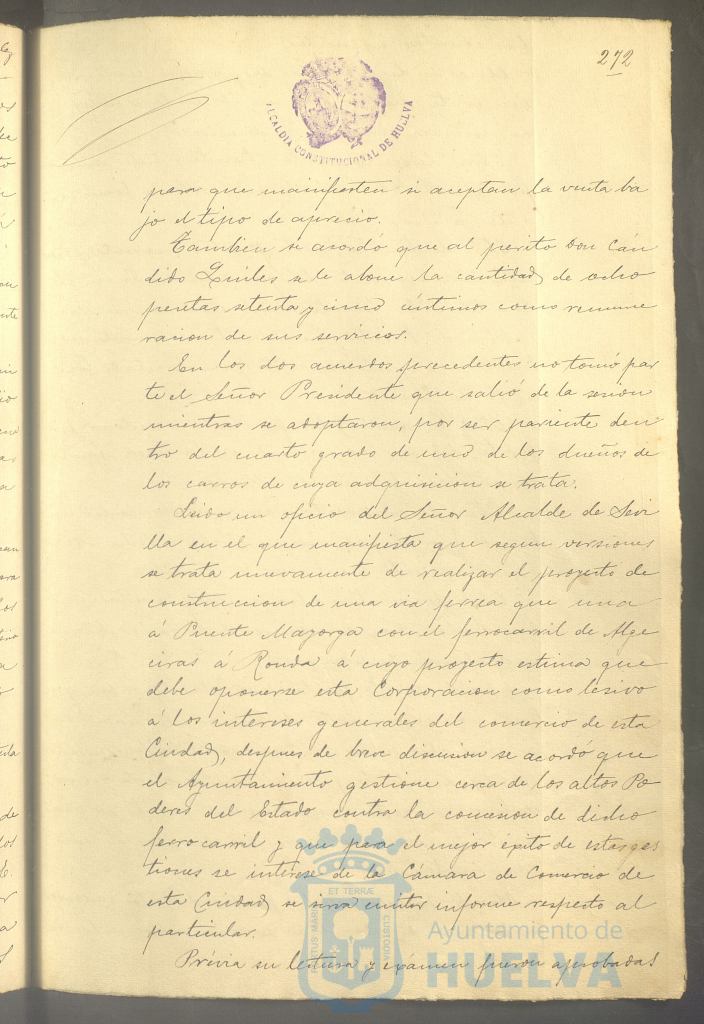 272
ALCALDIA CONSTITUCIONAL DE HUELVA
para que manifiesten si aceptan la venta ba
jo el tipo de aprecio.
Tambien se acordó que al perito Don Cán
dido Quiles se le abone la cantidad de ocho
pesetas setenta y cinco céntimos como remune
racion de sus servicios.
En los dos acuerdos precedentes no tomó par
te el Señor Presidente que salió de la sesion
mientras se adoptaron, por ser pariente den
tro del cuarto grado de uno de los dueños de
los carros de cuya adquisicion se trata.
Leido un oficio del Señor Alcalde de Sevi
lla en el que manifiesta que segun versiones
se trata nuevamente de realizar el proyecto de
construccion de una via ferrea que una
á Puente Mayorga con el ferrocarril de Alge
ciras á Ronda á cuyo proyecto estima que
debe oponerse esta Corporacion como lesivo
á los intereses generales del comercio de esta
Ciudad, despues de breve discusion se acordó que
el Ayuntamiento gestione cerca de los altos Po
deres del Estado contra la concesion de dicho
ferrocarril y que para el mejor éxito de estas ges
tiones se interese de la Cámara de Comercio de
esta Ciudad se sirva emitir informe respecto al
particular.
Prévia su lectura y exámen fueron aprobadas
ET TERRÆ
CUSTODIA
Ayuntamiento de
HUELVA